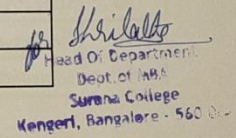 for
Head Of Department
Dept. of MBA
Surana College
Kengeri, Bangalore - 560 0